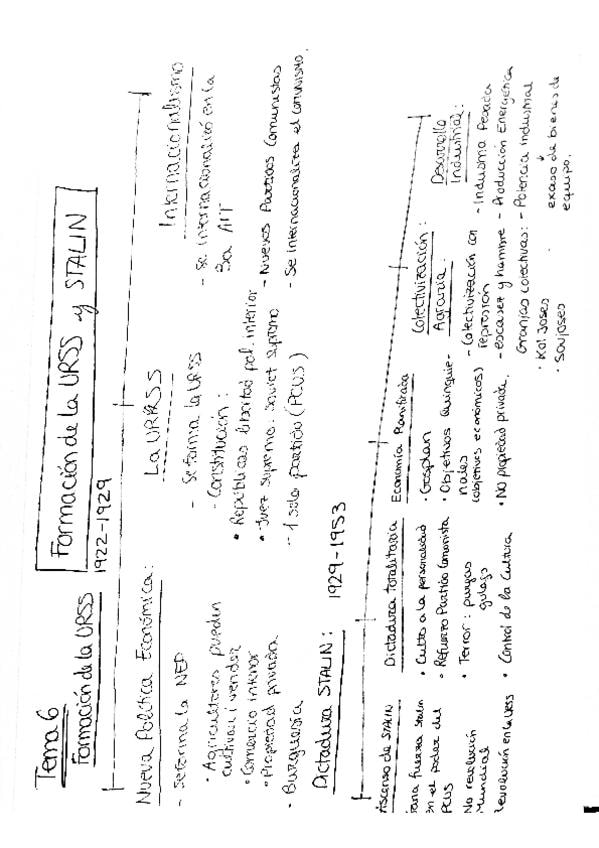 Tema 6
Formación de la URSS y STALIN
Formación de la URSS 1922-1929
Nueva Política Económica:
- Se forma la NEP
• Agricultores pueden
cultivar i vender
• Comercio interior
• Propiedad privada
• Burguesía
La URRSS
- Se forma la URSS
- Constitución:
• Repúblicas libertad pol. interior
• Juez Supremo: Soviet Supremo
- 1 solo partido (PCUS)
Internacionalismo
- Se internacionalizó en la
3a INT
- Nuevos Partidos Comunistas
- Se internacionaliza el comunismo.
Dictadura STALIN: 1929-1953
Ascenso de STALIN
Gana fuerza Stalin
en el poder del
PCUS
No revolución
Mundial
revolución en la URSS
Dictadura totalitaria
• Culto a la personalidad
• Refuerzo Partido Comunista
• Terror: purgas
gulags
• Control de la Cultura
Economía Planificada
• Gosplan
• Objetivos Quinque-
nales
(objetivos económicos)
• No propiedad privada.
Colectivización
Agraria:
- Colectivización con
represión
- escasez y hambre
Granjas colectivas:
• Koljoses
• Sovjoses
Desarrollo
Industrial:
- Industria Pesada
- Producción Energética
- Potencia industrial
↓
exceso de bienes de
equipo.